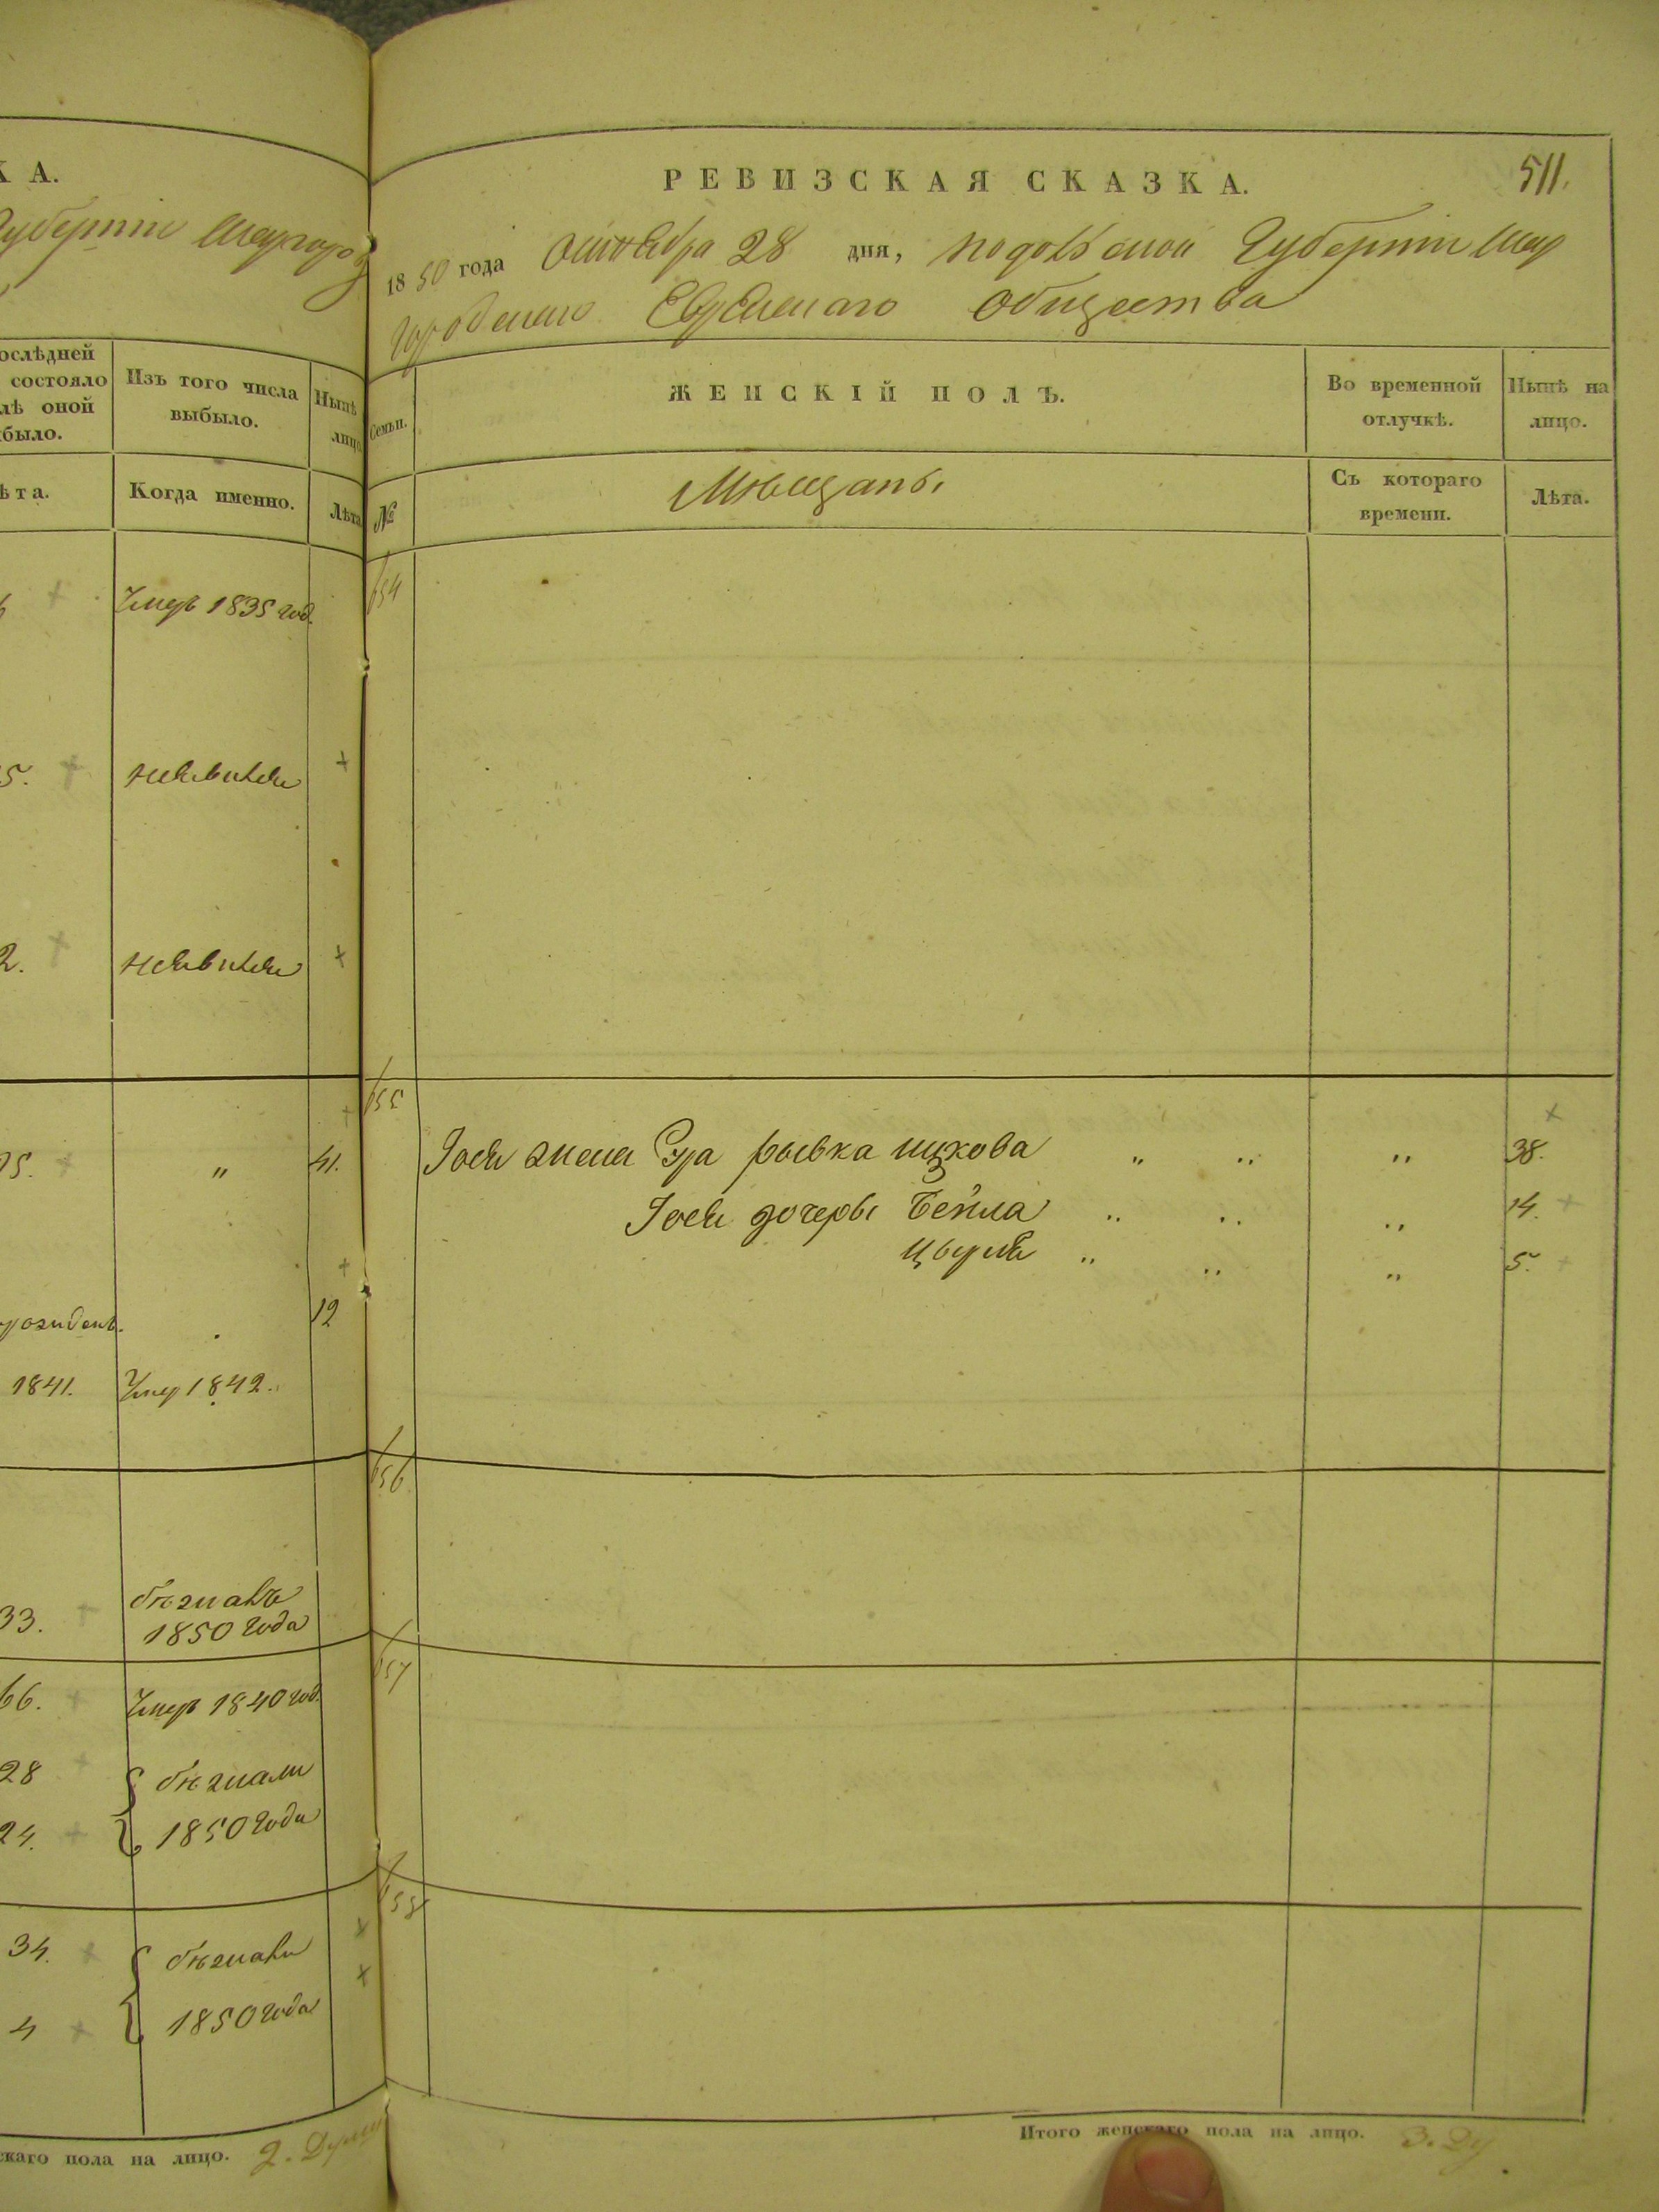 К А.
Губерніи Шаргород
ослѣдней
состояло
лѣ оной
было.
Изъ того числа
выбыло.
Нынѣ
лицо
ѣта.
Когда именно.
Лѣта
Умеръ 1835 год.
5.
неявился
2.
неявился
„
41.
12
1841.
Умер 1842.
33.
бѣжалъ
1850 года
66.
Умеръ 1840 год.
28
бѣжали
24.
1850 года
34.
бѣжали
4
1850 года
скаго пола на лицо. 2. Души
РЕВИЗСКАЯ СКАЗКА.
511.
1850 года Октября 28 дня, Подольской Губерніи Шар
городскаго Еврейскаго Общества
Семьи.
ЖЕНСКІЙ ПОЛЪ.
Во временной
отлучкѣ.
Нынѣ на
лицо.
№
Мѣщаны
Съ котораго
времени.
Лѣта.
654
655
Іося жена Сура Рывка Ицкова „ „ „ 38.
Іося дочеры Бейла „ „ „ 14.
Цвуля „ „ „ 5.
656
657
658
Итого женскаго пола на лицо. 3. Ду